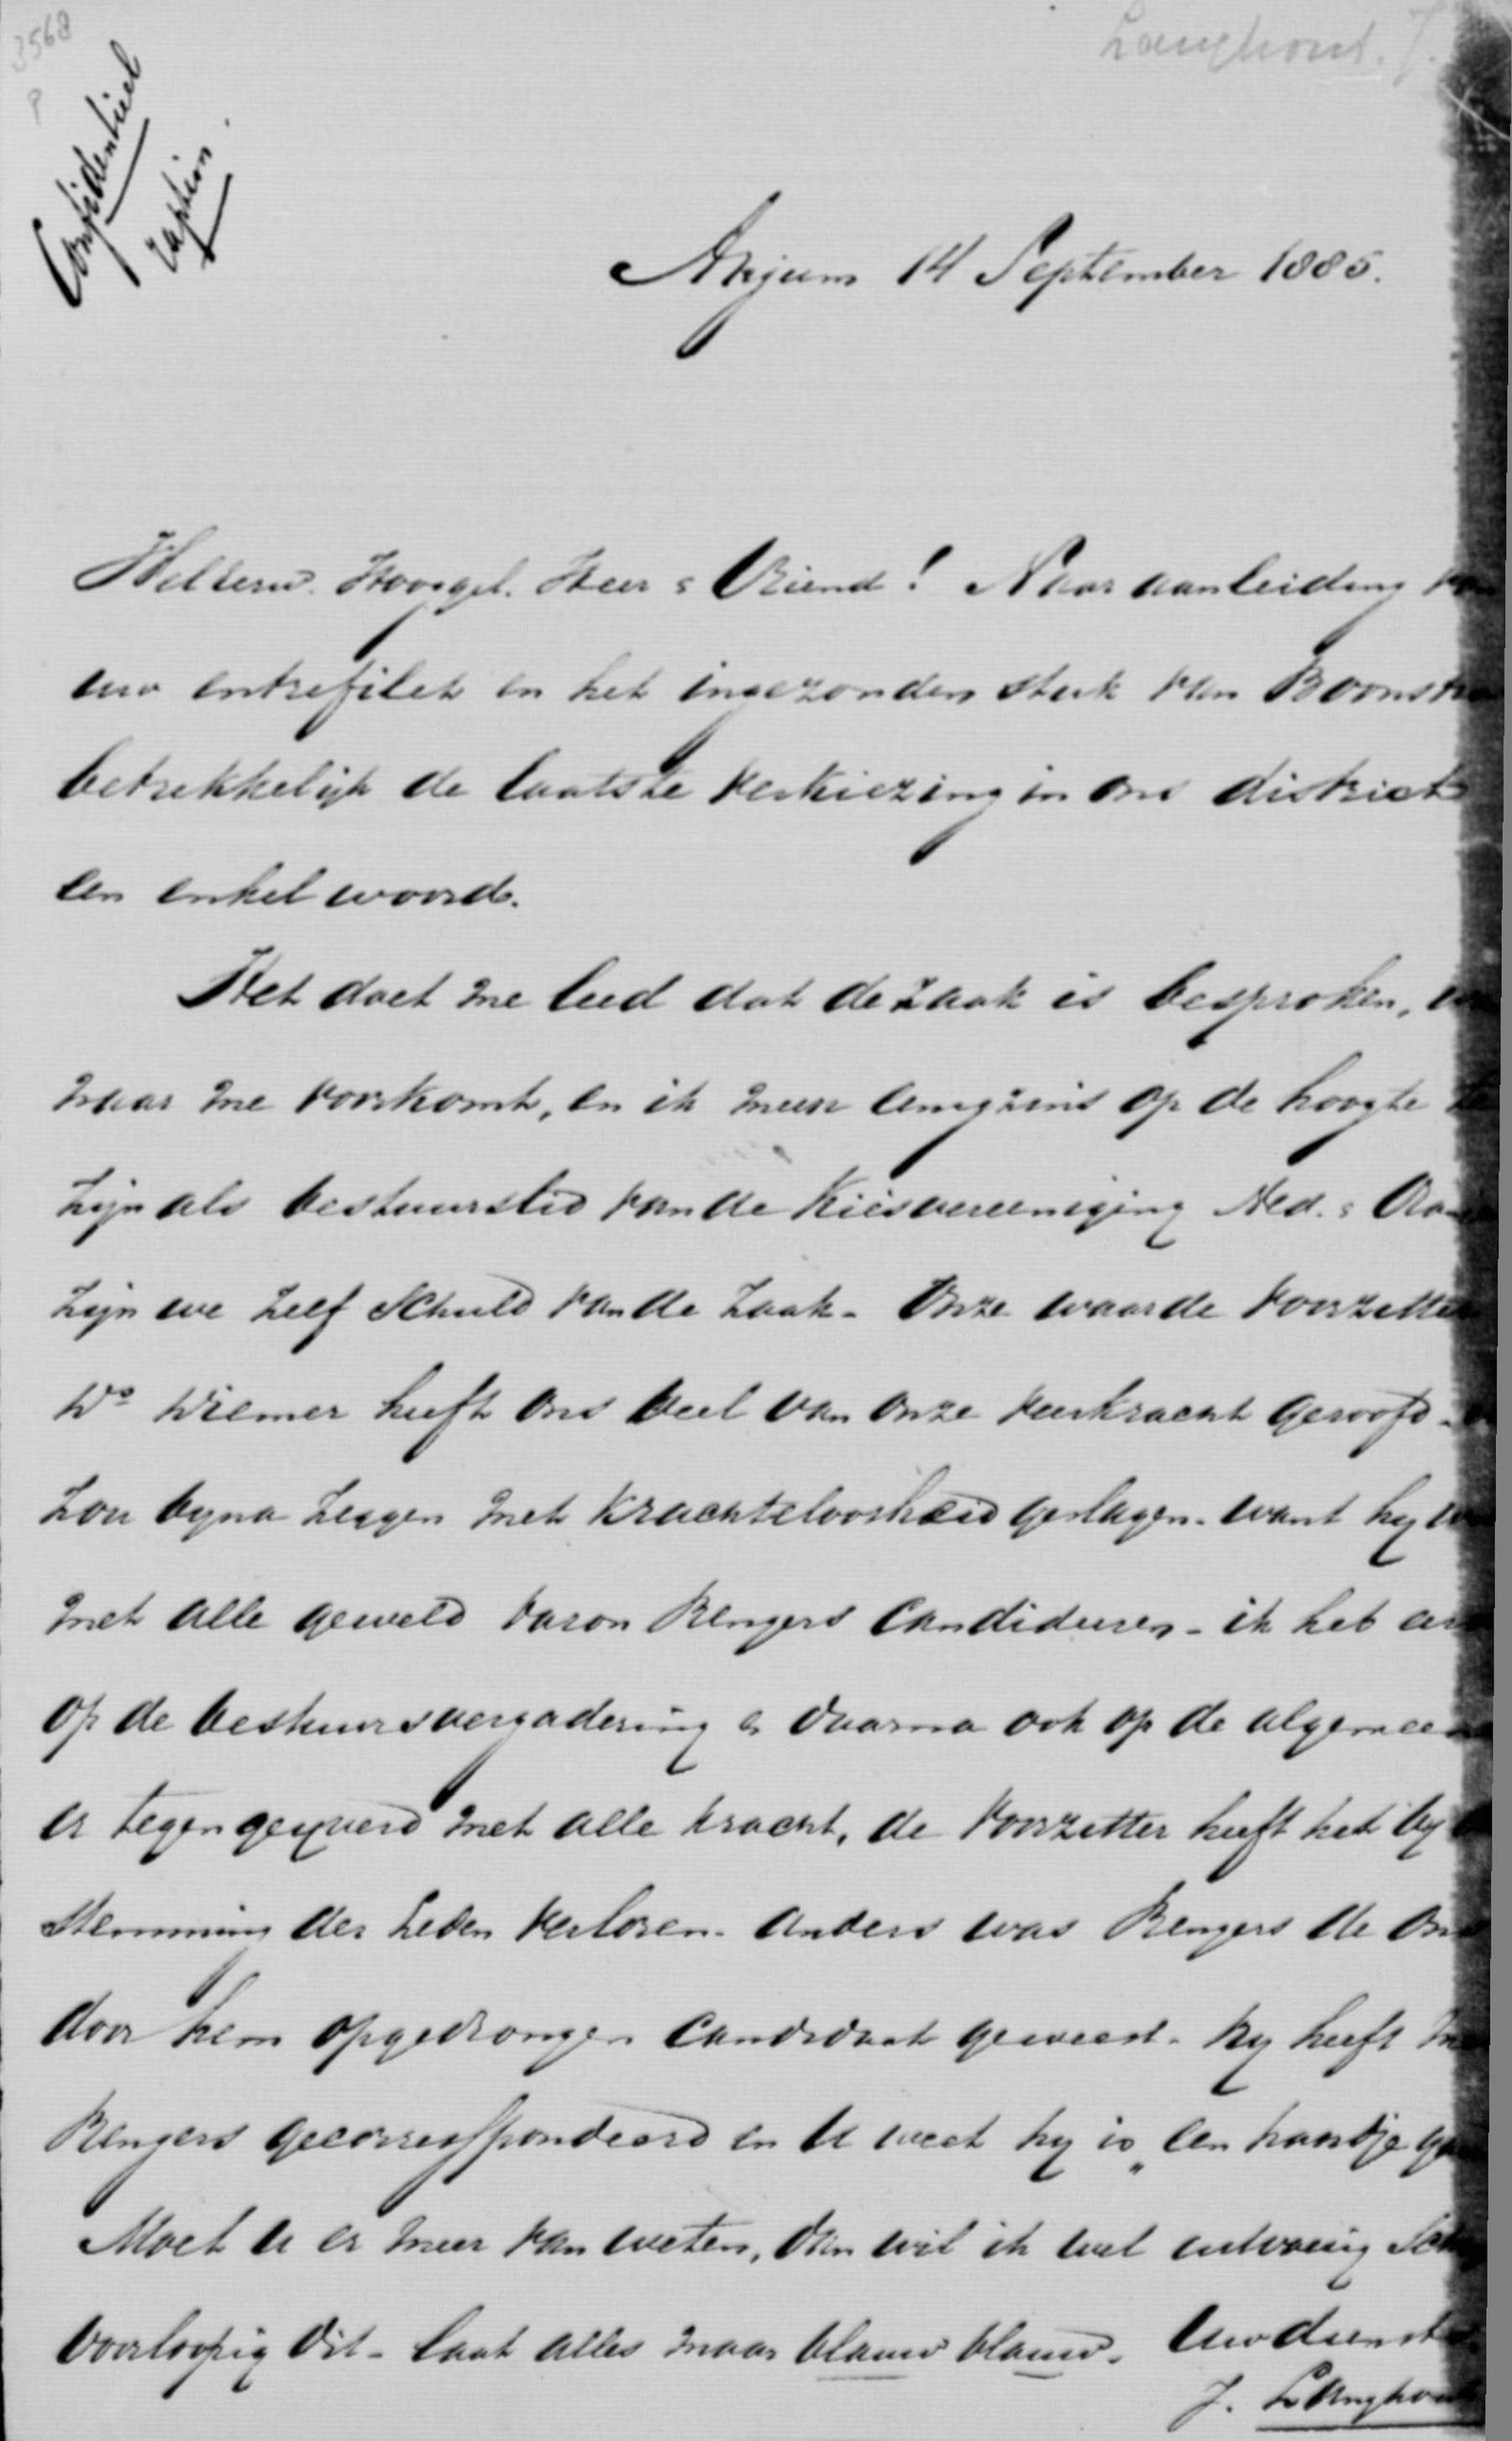 3568
Langhout. J.
Confidentieel
Anjum 14 September 1885.
WelEerw. Hooggel. Heer & Vriend! Naar aanleiding van
uw entrefilet en het ingezonden stuk van Boonstra
betrekkelijk de laatste verkiezing in ons district
een enkel woord.
Het doet me leed dat de zaak is besproken,
naar me voorkomt, en ik meen eenigzins op de hoogte te
zijn als bestuurslid van de Kiesvereeniging Ned. &
zijn we zelf schuld van de zaak - Onze waarde voorzitter
Ds Wiemer heeft ons veel van onze veerkracht geroofd -
zou byna zeggen met krachteloosheid geslagen - want hy
met alle geweld baron Rengers candideeren - ik heb
op de bestuursvergadering & daarna ook op de algemeene
er tegen geijverd met alle kracht, de voorzitter heeft het by
stemming der Leden verloren - anders was Rengers de ons
door hem opgedrongen candidaat geweest - hy heeft
Rengers gecorrespondeerd en U weet hy is „een haantje
Moet U er meer van weten, dan wil ik wel
voorloopig dit - laat alles maar blauw blauw. Uw
J. Langhout